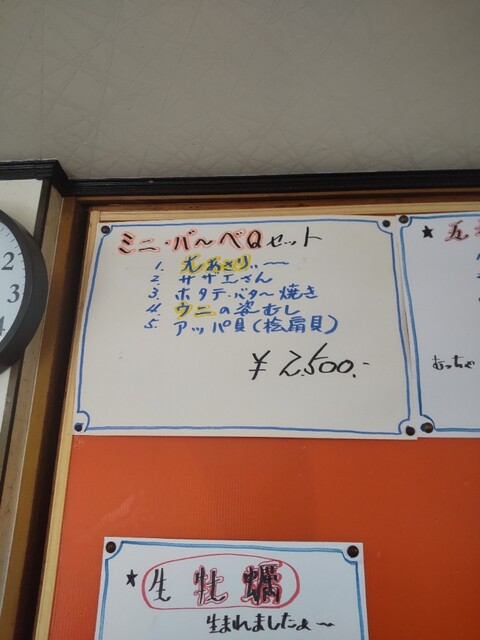 ミニ・バ〜ベQセット
1. 大あさり〜
2. サザエさん
3. ホタテ・バタ〜焼き
4. ウニの姿むし
5. アッパ貝(桧扇貝)
¥2,500.-
★五
むっちゃ
★生牡蠣
生まれましたよ〜
2
3